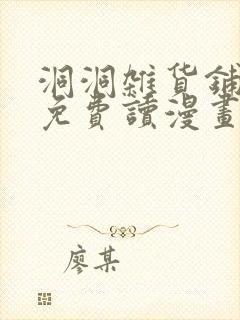 洞洞雜貨鋪
免費讀漫畫
廖某